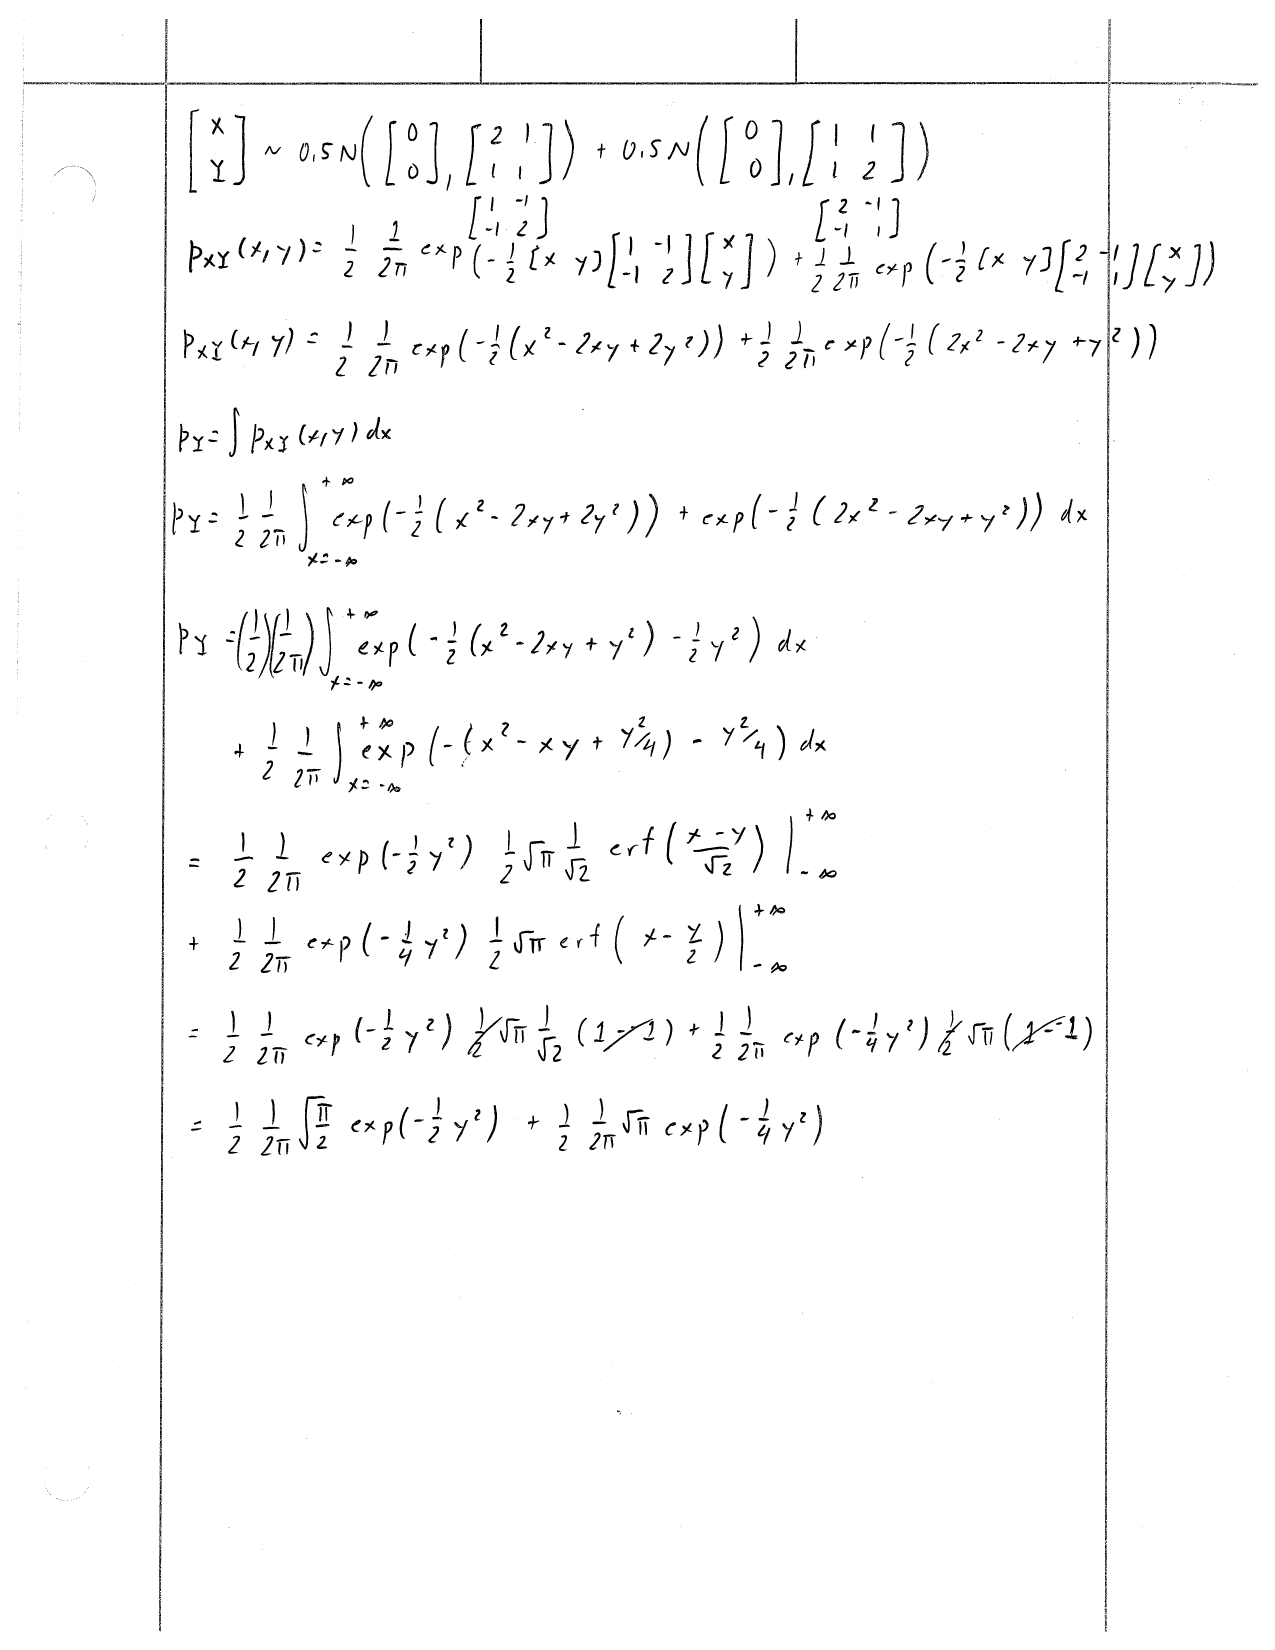 [X Y] ~ 0.5 N([0 0], [2 1 1 1]) + 0.5 N([0 0], [1 1 1 2])
[1 -1 -1 2] [2 -1 -1 1]
p_XY(x,y) = 1/2 1/2π exp(-1/2 [x y][1 -1 -1 2][x y]) + 1/2 1/2π exp(-1/2 [x y][2 -1 -1 1][x y])
p_XY(x,y) = 1/2 1/2π exp(-1/2(x² - 2xy + 2y²)) + 1/2 1/2π exp(-1/2(2x² - 2xy + y²))
p_Y = ∫ p_XY(x,y) dx
p_Y = 1/2 1/2π ∫_{x=-∞}^{+∞} exp(-1/2(x² - 2xy + 2y²)) + exp(-1/2(2x² - 2xy + y²)) dx
p_Y = (1/2)(1/2π) ∫_{x=-∞}^{+∞} exp(-1/2(x² - 2xy + y²) - 1/2 y²) dx
+ 1/2 1/2π ∫_{x=-∞}^{+∞} exp(-(x² - xy + y²/4) - y²/4) dx
= 1/2 1/2π exp(-1/2 y²) 1/2 √π 1/√2 erf((x-y)/√2) |_{-∞}^{+∞}
+ 1/2 1/2π exp(-1/4 y²) 1/2 √π erf(x - y/2) |_{-∞}^{+∞}
= 1/2 1/2π exp(-1/2 y²) 1/2 √π 1/√2 (1--1) + 1/2 1/2π exp(-1/4 y²) 1/2 √π (1--1)
= 1/2 1/2π √(π/2) exp(-1/2 y²) + 1/2 1/2π √π exp(-1/4 y²)